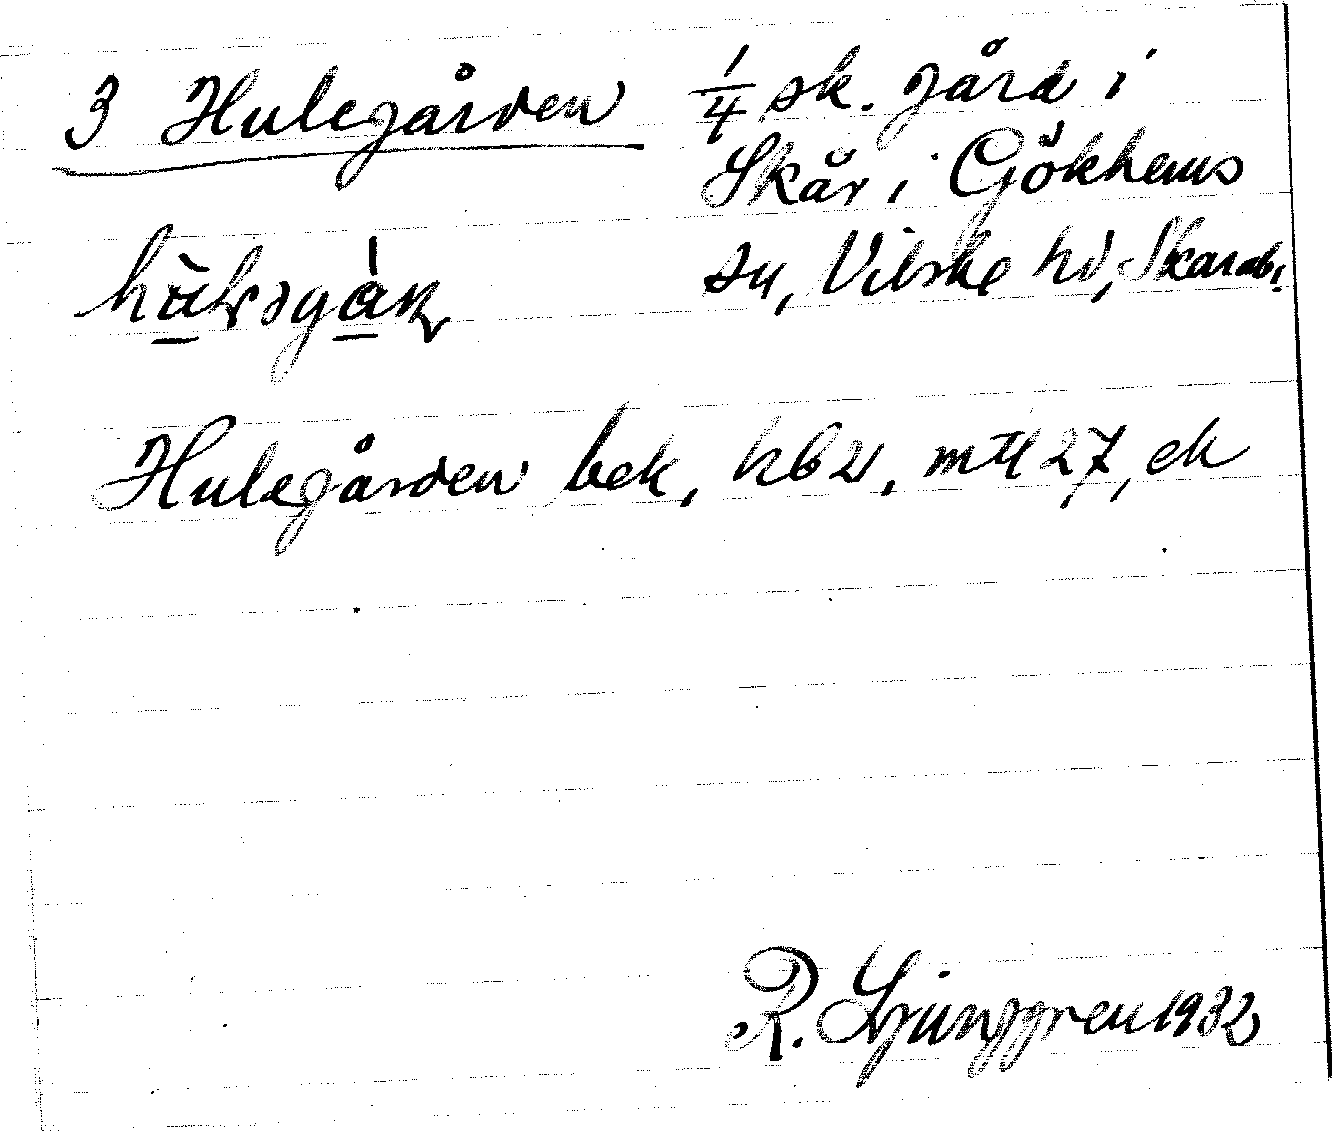 3 Hulegården 1/4 sk. gård i
Skår i Gökhems
sn, Vilske hd, Skarabi.
Hulegården bek, hb 21, mtl 27, ek
R. Ljunggren 1932